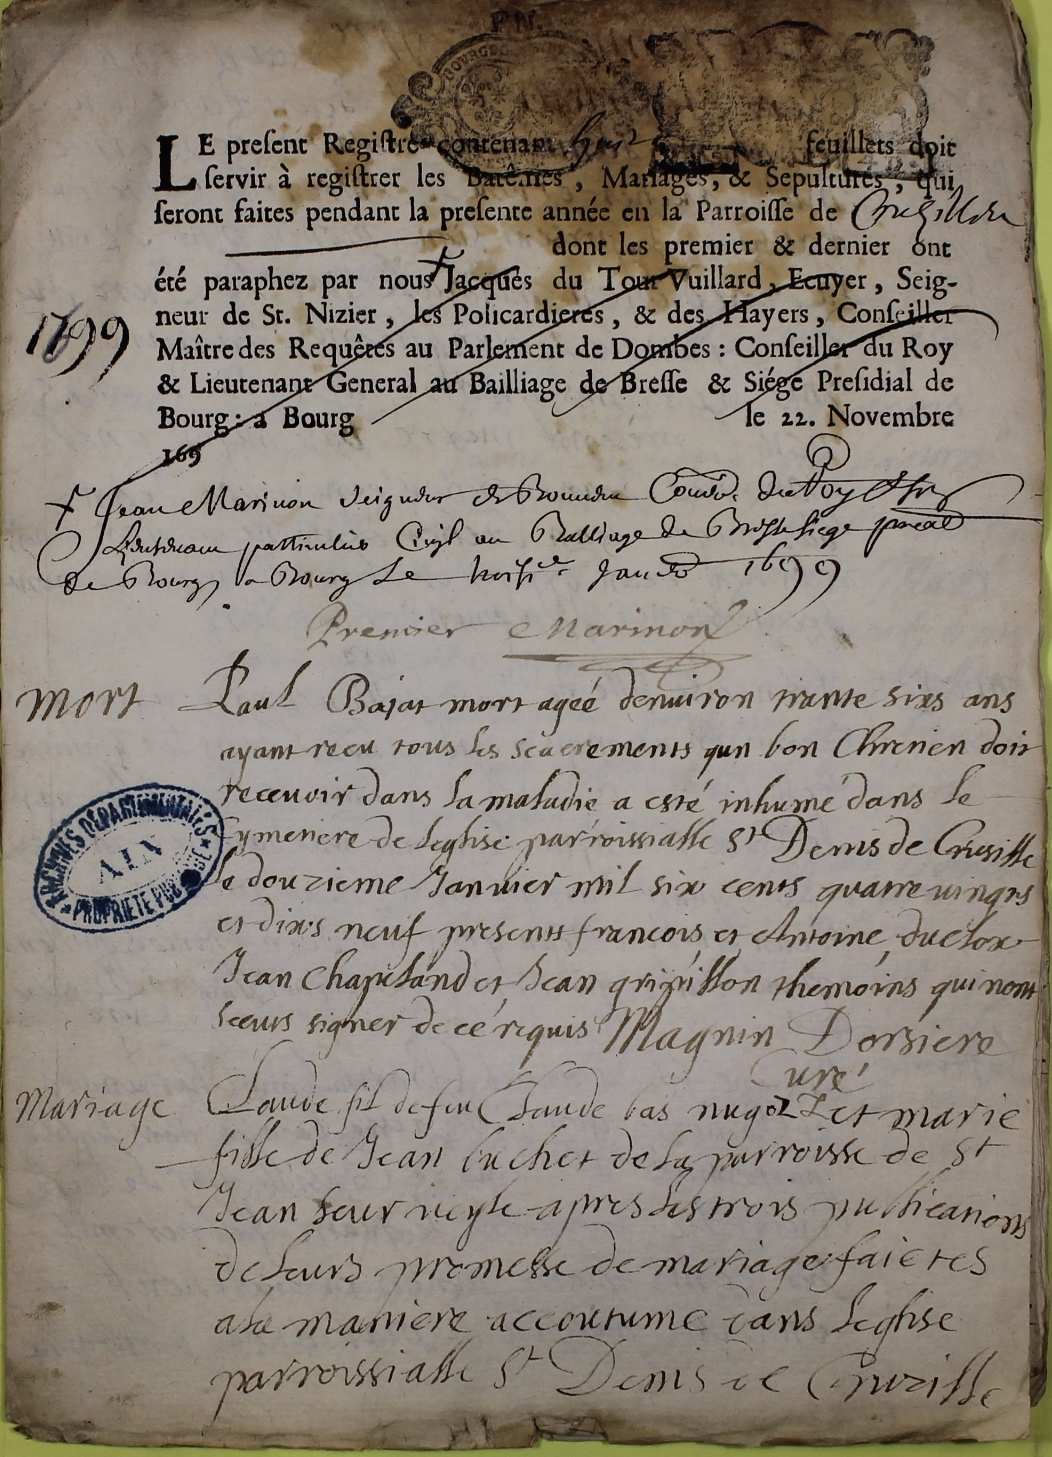 LE preſent Regiſtre contenant huit feuillets doit
ſervir à regiſtrer les Batêmes, Mariages, & Sepultures, qui
ſeront faites pendant la preſente année en la Parroiſſe de
dont les premier & dernier ont
été paraphez par nous Jacques du Tour Vuillard, Ecuyer, Seig-
neur de St. Nizier, les Policardieres, & des Hayers, Conſeiller
1699
Maître des Requêtes au Parlement de Dombes : Conſeiller du Roy
& Lieutenant General au Bailliage de Breſſe & Siége Preſidial de
Bourg : à Bourg le 22. Novembre
169
Jean Marinon Seigneur de Conser. du Roy
Lieutenant particulier Civil au Balliage de Bresse siege
de Bourg a Bourg Le troisie. Janv. 1699
Premier Marinon
mort Paul Bajat mort ageé denuiron trante sixs ans
ayant receu tous les sacrements qun bon Chretien doit
recevoir dans la maladie a esté inhumé dans le
Cymetiere de leglise parroissialle St Denis de Crusille
le douzieme Janvier mil six cents quatre vingts
et dixs neuf presents francois et Antoine duclox
Jean Chapeland et Jean themoins qui nont
sceus signer de cé requis Magnin Dorsiere
Curé
Mariage Claude fil de feu Claude bas et marie
fille de Jean buchet de la parroisse de St
Jean seur veyle apres les trois publications
de leurs promesse de mariage faictes
a la maniere accoutume dans leglise
parroissialle St Denis de Cruzille
ARCHIVES DÉPARTEMENTALES
AIN
PROPRIÉTÉ PUBLIQUE